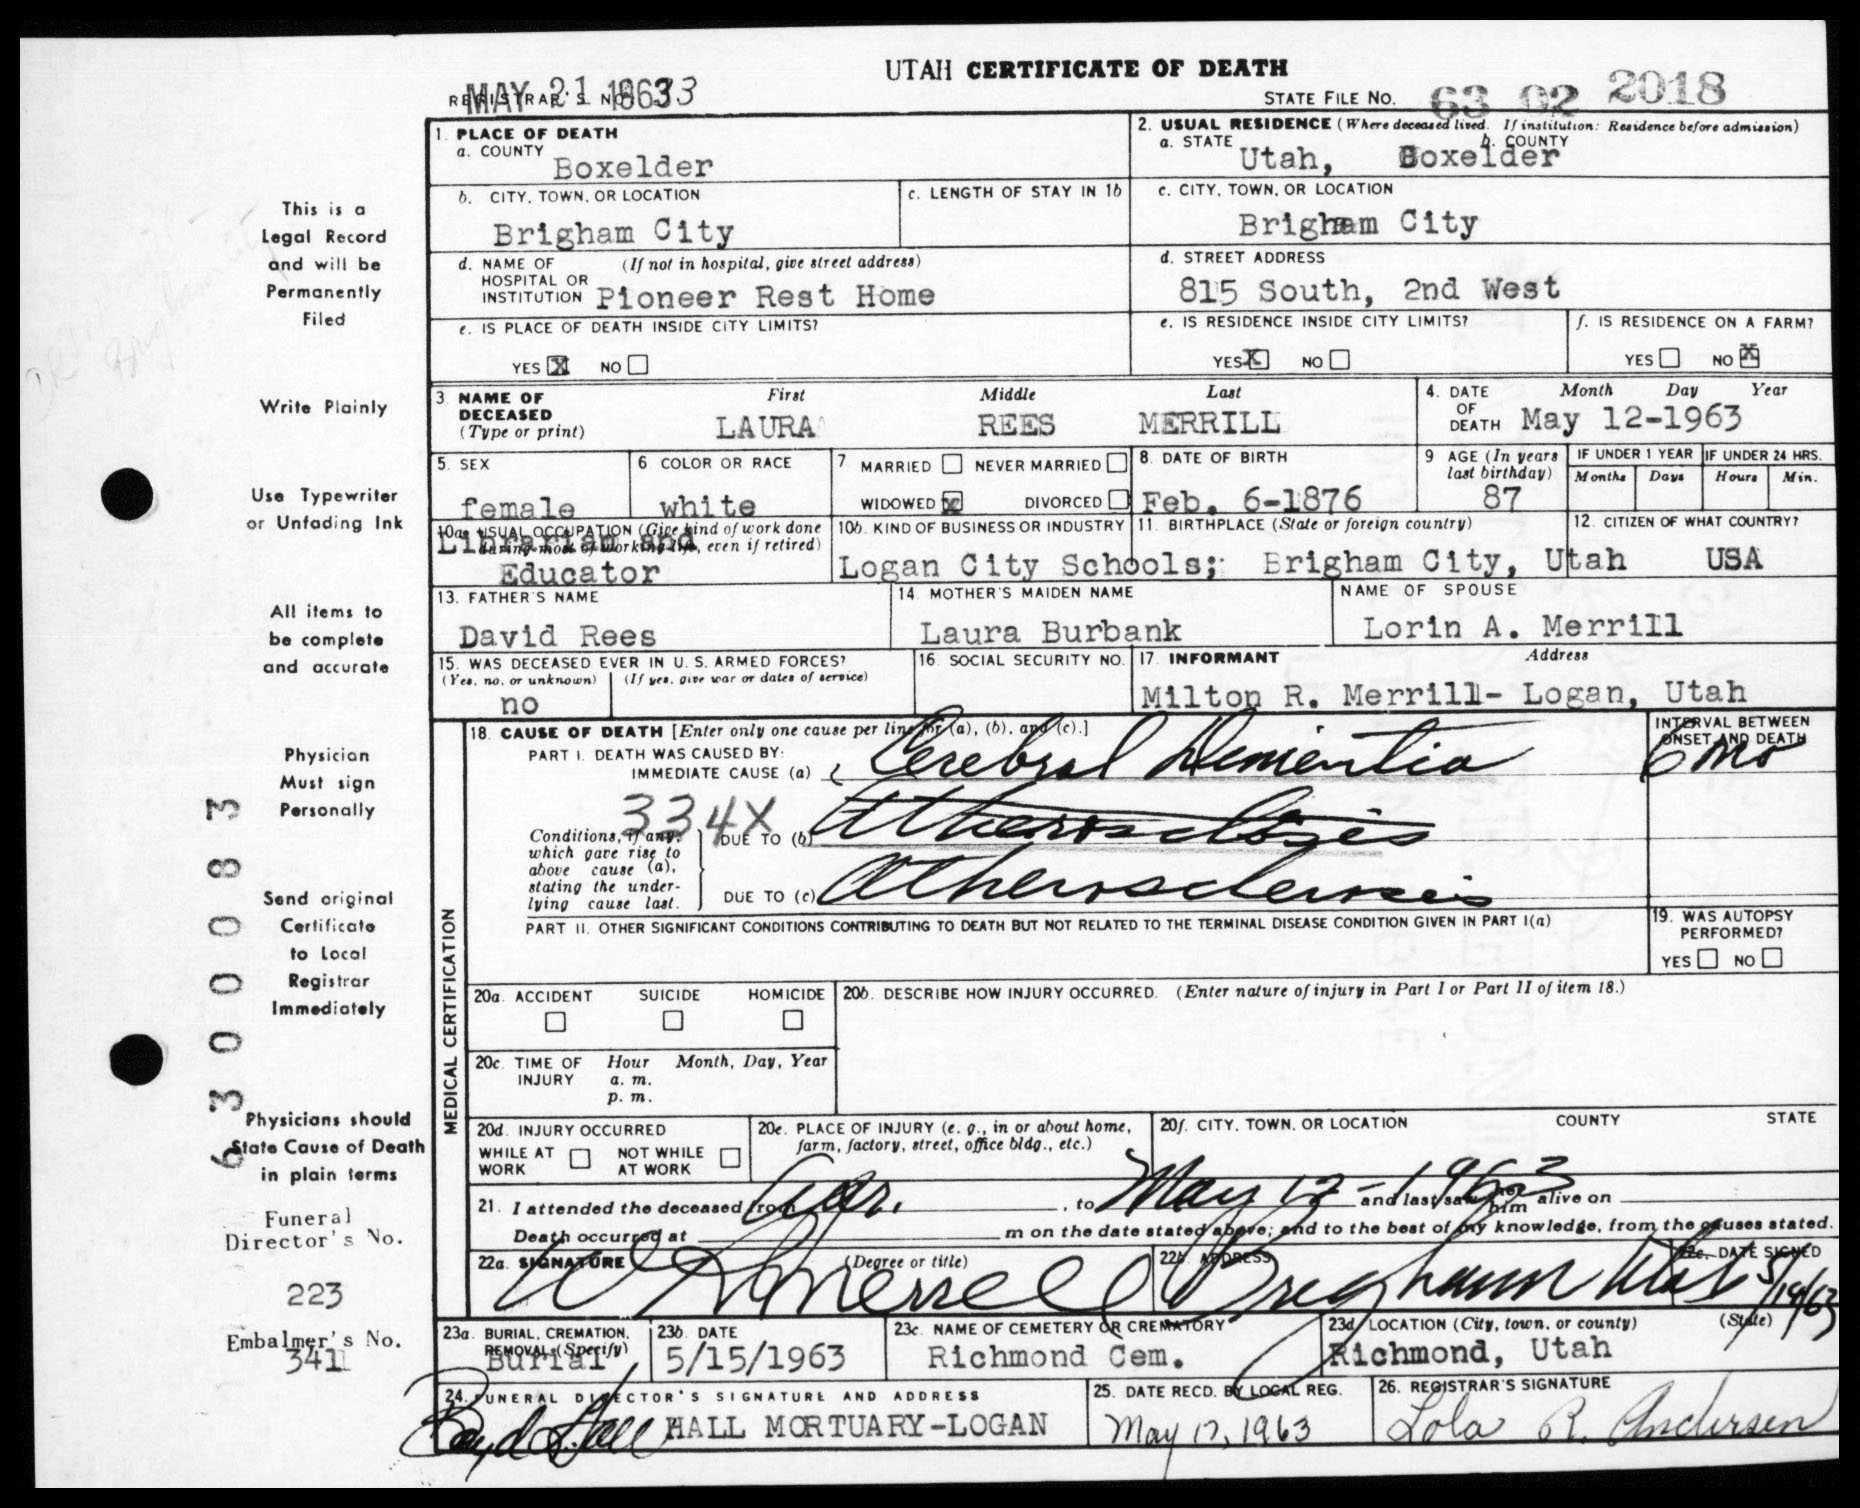 UTAH CERTIFICATE OF DEATH
MAY 21 1963
REGISTRAR'S NO. 33
STATE FILE NO. 63 02 2018
1. PLACE OF DEATH
a. COUNTY
Boxelder
2. USUAL RESIDENCE (Where deceased lived. If institution: Residence before admission)
a. STATE Utah, b. COUNTY Boxelder
b. CITY, TOWN, OR LOCATION
Brigham City
c. LENGTH OF STAY IN 1b
c. CITY, TOWN, OR LOCATION
Brigham City
d. NAME OF HOSPITAL OR INSTITUTION (If not in hospital, give street address)
Pioneer Rest Home
d. STREET ADDRESS
815 South, 2nd West
e. IS PLACE OF DEATH INSIDE CITY LIMITS?
YES X NO
e. IS RESIDENCE INSIDE CITY LIMITS?
YES X NO
f. IS RESIDENCE ON A FARM?
YES NO X
3. NAME OF DECEASED (Type or print)
First Middle Last
LAURA REES MERRILL
4. DATE OF DEATH Month Day Year
May 12-1963
5. SEX
female
6 COLOR OR RACE
white
7 MARRIED NEVER MARRIED
WIDOWED X DIVORCED
8. DATE OF BIRTH
Feb. 6-1876
9 AGE (In years last birthday)
87
IF UNDER 1 YEAR
Months Days
IF UNDER 24 HRS.
Hours Min.
10a. USUAL OCCUPATION (Give kind of work done during most of working life, even if retired)
Librarian and
Educator
10b. KIND OF BUSINESS OR INDUSTRY
Logan City Schools;
11. BIRTHPLACE (State or foreign country)
Brigham City, Utah
12. CITIZEN OF WHAT COUNTRY?
USA
13. FATHER'S NAME
David Rees
14. MOTHER'S MAIDEN NAME
Laura Burbank
NAME OF SPOUSE
Lorin A. Merrill
15. WAS DECEASED EVER IN U. S. ARMED FORCES?
(Yes, no, or unknown) (If yes, give war or dates of service)
no
16. SOCIAL SECURITY NO.
17. INFORMANT Address
Milton R. Merrill- Logan, Utah
MEDICAL CERTIFICATION
18. CAUSE OF DEATH [Enter only one cause per line for (a), (b), and (c).]
INTERVAL BETWEEN ONSET AND DEATH
PART I. DEATH WAS CAUSED BY:
IMMEDIATE CAUSE (a) Cerebral Dementia 6 mo
334X
Conditions, if any, which gave rise to above cause (a), stating the underlying cause last.
DUE TO (b) Atherosclosis
DUE TO (c) Atherosclerosis
PART II. OTHER SIGNIFICANT CONDITIONS CONTRIBUTING TO DEATH BUT NOT RELATED TO THE TERMINAL DISEASE CONDITION GIVEN IN PART I(a)
19. WAS AUTOPSY PERFORMED?
YES NO
20a. ACCIDENT SUICIDE HOMICIDE
20b. DESCRIBE HOW INJURY OCCURRED. (Enter nature of injury in Part I or Part II of item 18.)
20c. TIME OF INJURY Hour Month, Day, Year
a. m.
p. m.
20d. INJURY OCCURRED
WHILE AT WORK NOT WHILE AT WORK
20e. PLACE OF INJURY (e. g., in or about home, farm, factory, street, office bldg., etc.)
20f. CITY, TOWN, OR LOCATION COUNTY STATE
21. I attended the deceased from , to May 12-1963 and last saw her him alive on
Death occurred at m on the date stated above; and to the best of my knowledge, from the causes stated.
22a. SIGNATURE (Degree or title)
22b. ADDRESS
Brigham Utah
22c. DATE SIGNED
5/14/63
23a. BURIAL, CREMATION, REMOVAL (Specify)
Burial
23b. DATE
5/15/1963
23c. NAME OF CEMETERY OR CREMATORY
Richmond Cem.
23d. LOCATION (City, town, or county) (State)
Richmond, Utah
24. FUNERAL DIRECTOR'S SIGNATURE AND ADDRESS
Boyd L. Hall HALL MORTUARY-LOGAN
25. DATE RECD. BY LOCAL REG.
May 17, 1963
26. REGISTRAR'S SIGNATURE
Lola R. Andersen
This is a
Legal Record
and will be
Permanently
Filed
Write Plainly
Use Typewriter
or Unfading Ink
All items to
be complete
and accurate
Physician
Must sign
Personally
Send original
Certificate
to Local
Registrar
Immediately
Physicians should
State Cause of Death
in plain terms
6300083
Funeral
Director's No.
223
Embalmer's No.
341